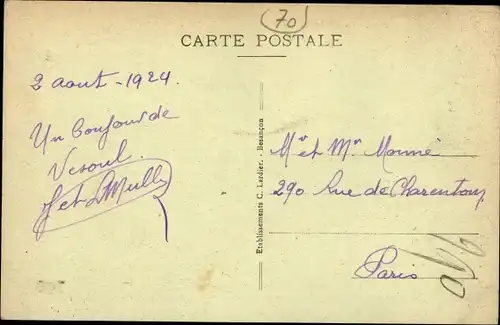 70
CARTE POSTALE
2 aout - 1924.
Un bonjour de
Vesoul.
J et L Mulle
Etablissements C. Lardier. - Besançon
Mr et Mme Monné
290 Rue de Charenton
Paris